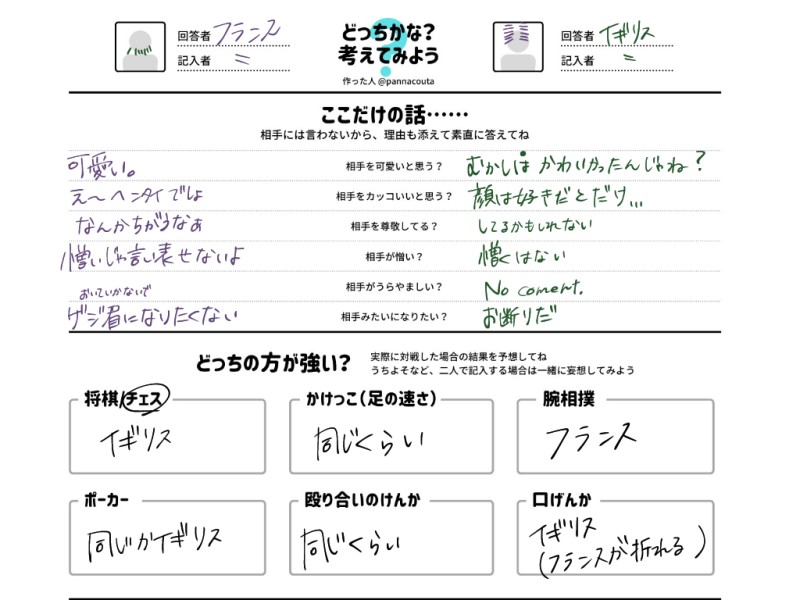 回答者 フランス
記入者 〃
どっちかな？
考えてみよう
作った人 @pannacouta
回答者 イギリス
記入者 〃
ここだけの話……
相手には言わないから、理由も添えて素直に答えてね
可愛い。 相手を可愛いと思う？ むかしは かわいかったんじゃね？
え〜ヘンタイでしょ 相手をカッコいいと思う？ 顔は好きだとだけ...
なんかちがうなぁ 相手を尊敬してる？ してるかもしれない
憎いじゃ言い表せないよ 相手が憎い？ 憎くはない
おいていかないで 相手がうらやましい？ No coment.
ゲジ眉になりたくない 相手みたいになりたい？ お断りだ
どっちの方が強い？
実際に対戦した場合の結果を予想してね
うちよそなど、二人で記入する場合は一緒に妄想してみよう
将棋/チェス かけっこ（足の速さ） 腕相撲
イギリス 同じくらい フランス
ポーカー 殴り合いのけんか 口げんか
同じかイギリス 同じくらい イギリス
(フランスが折れる)